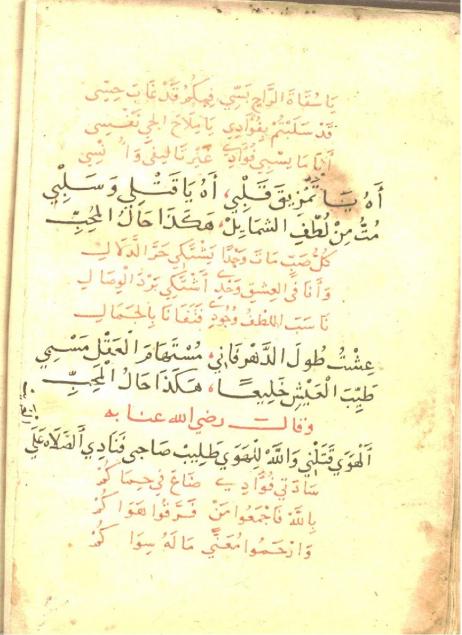 يَا سُقَاةَ الرَّاحِ بَسّي فِيكُمُ قَدْ غَابَ حِسِّي
قَدْ سَلَبْتُمْ بِفُؤَادِي يَا مِلَاحَ الحَيِّ نَفْسِي
أَنَا مَا يَسْبِي فُؤَادِي غَيْرُ
أَهْ يَا تَمْزِيقَ قَلْبِي، أَهْ يَا قَتْلِي وَسَلْبِي
مُتُّ مِنْ لُطْفِ الشَّمَايِلْ، هَكَذَا حَالُ المُحِبِّ
كُلُّ صَبٍّ مَاتَ وَجْدًا يَشْتَكِي حَرَّ الدَّلَالِ
وَأَنَا فِي العِشْقِ وَحْدِي أَشْتَكِي بَرْدَ الوِصَالِ
نَاسَبَ اللُّطْفُ وُجُودِي فَنَفَانَا بِالجَمَالِ
عِشْتُ طُولَ الدَّهْرِ فَانِي، مُسْتَهَامَ العَقْلِ مَسْبِي
طَيِّبَ العَيْشِ خَلِيعًا، هَكَذَا حَالُ المُحِبِّ
وقال رضي الله عنا به
الهَوَى قَتَلْنِي وَاللَّهْ لِلْهَوَى طَلِيبْ صَاحِي فَنَادِي الصَّلَاهْ عَلَى
الغَرِيبْ
سَادَتِي فُؤَادِي ضَاعَ فِي حِمَاكُمْ
بِاللَّهْ فَاجْمَعُوا مَنْ فَرَّقُوا هَوَاكُمْ
وَارْحَمُوا مُعَنًّى مَا لَهُ سِوَاكُمْ